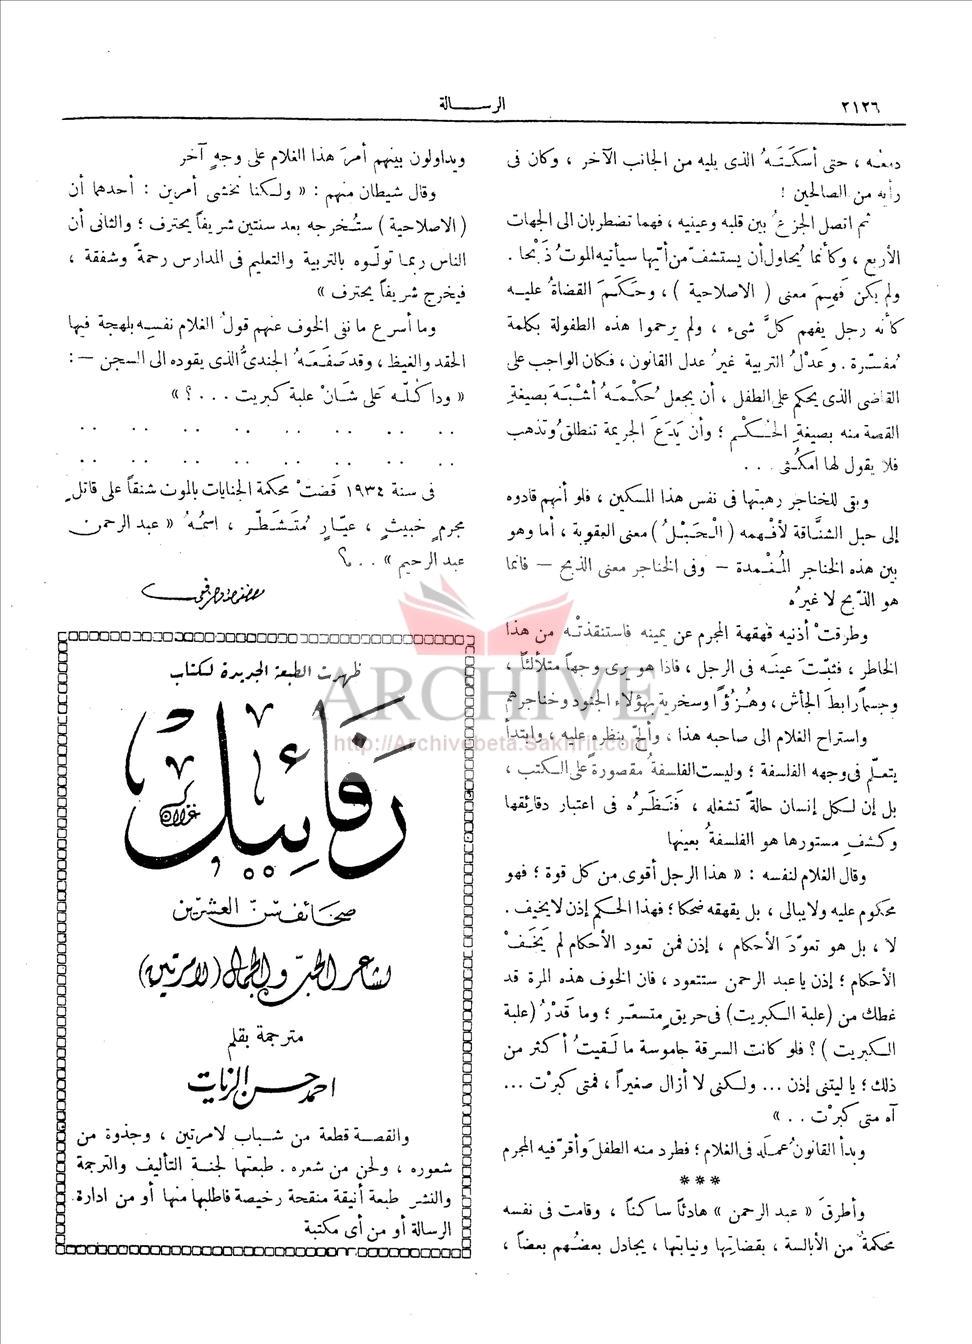 ٢١٢٦
الرسالة
دمعْه ، حتى أسكتَـتَهُ الذى يليه من الجانب الآخر ، وكان فى
رأيه من الصالحين !
ثم اتصل الجزعُ بين قلبه وعينيه ، فهما تضطربان الى الجهات
الأربع ، وكأنما يُحاول أن يستشفّ من أيّها سيأتيه الموتُ ذَبْحا .
ولم يكن فَهِمَ معنى ( الاصلاحية ) ، وحَكَمَ القضاةُ عليه
كأنه رجل يفهم كلَّ شىء ، ولم يرحموا هذه الطفولة بكلمة
مُفسّرة . وعَدْلُ التربية غيرُ عدل القانون ، فكان الواجب على
القاضى الذى يحكم على الطفل ، أن يجعل حُكْمَهُ أشْبَهَ بصيغةِ
القصة منه بصيغةِ الحُكْم ؛ وأن يَدَعَ الجريمة تنطلقُ وتذهب
فلا يقول لها امكُثى . . .
وبقى للخناجر رهبتها فى نفس هذا المسكين ، فلو أنهم قادوه
إلى حبل الشنَّاقة لأفْهمه ( الْحَبْلُ ) معنى العقوبة ، أما وهو
بين هذه الخناجر المُغْمدة – وفى الخناجر معنى الذبح – فانما
هو الذّبح لا غيرُه
وطرقتْ أذنيه قهقهة المجرم عن يمينه فاستنقذتْه من هذا
الخاطر ، فثبّتَ عينَه فى الرجل ، فاذا هو يرى وجهاً متلألئاً ،
وجسماً رابطَ الجأش ، وهُزُؤًا وسخرية بهؤلاء الجنود وخناجرهم
واستراح الغلام الى صاحبه هذا ، وألحّ بنظره عليه ، وابتدأ
يتعلّم فى وجهه الفلسفة ؛ وليست الفلسفةُ مقصورةً على الكتب ،
بل إن لكل إنسان حالةً تشغله ، فَنَظَرُه فى اعتبار دقائقِها
وكشفِ مستورها هو الفلسفةُ بعينها
وقال الغلام لنفسه : « هذا الرجل أقوى من كل قوة ؛ فهو
محكوم عليه ولا يبالى ، بل يقهقه ضحكا ؛ فهذا الحكم إذن لا يخيف .
لا ، بل هو تعوّدَ الأحكام ، إذن فمن تعود الأحكام لم يَخَفْ
الأحكام ؛ إذن يا عبد الرحمن ستتعود ، فان الخوف هذه المرة قد
غطك من (علبة الكبريت) فى حريقٍ متسعّر ؛ وما قَدْرُ (علبة
الكبريت ) ؟ فلو كانت السرقة جاموسة ما لَقيتُ أكثر من
ذلك ؛ يا ليتنى إذن ... ولكنى لا أزال صغيراً ، فمتى كبرْت ...
آه متى كبرْت . . »
وبدأ القانونُ عملَه فى الغلام ؛ فطرد منه الطفلَ وأقرّ فيه المجرم
* * *
وأطرقَ « عبد الرحمن » هادئاً ساكناً ، وقامت فى نفسه
محكمةٌ من الأبالسة ، بقضاتها ونيابتها ، يجادل بعضُهم بعضاً ،
ويداولون بينهم أمرَ هذا الغلام على وجهٍ آخر
وقال شيطان منهم : « ولكنا نخشى أمرين : أحدهما أن
( الاصلاحية ) ستُخرجه بعد سنتين شريفاً يحترف ؛ والثانى أن
الناس ربما تولّوه بالتربية والتعليم فى المدارس رحمةً وشفقة ،
فيخرج شريفاً يحترف »
وما أسرع ما نفى الخوف عنهم قولُ الغلام نفسِه بلهجة فيها
الحقد والغيظ ، وقد صَفَعَهُ الجندىُّ الذى يقوده الى السجن – :
« ودا كُلّه عَلى شَانْ علبة كبريت . . . ؟ »
. . . . . . . .
. . . . . . . .
فى سنة ١٩٣٤ قَضتْ محكمة الجنايات بالموت شنقاً على قاتلٍ
مجرمٍ خبيثٍ ، عيّارٍ مُتَشَطّرٍ ، اسمُهُ « عبد الرحمن
عبد الرحيم » . . . ؟
مصطفى صادق الرافعى
ظهرت الطبعة الجديدة لكتاب
رفائيل
صحائف سن العشرين
لشاعر الحب والجمال (لامرتين)
مترجمة بقلم
احمد حسن الزيات
والقصة قطعة من شباب لامرتين ، وجذوة من
شعوره ، ولحن من شعره . طبعتها لجنة التأليف والترجمة
والنشر طبعة أنيقة منقحة رخيصة فاطلبها منها أو من ادارة
الرسالة أو من أى مكتبة
ARCHIVE
http://Archivebeta.Sakhrit.com